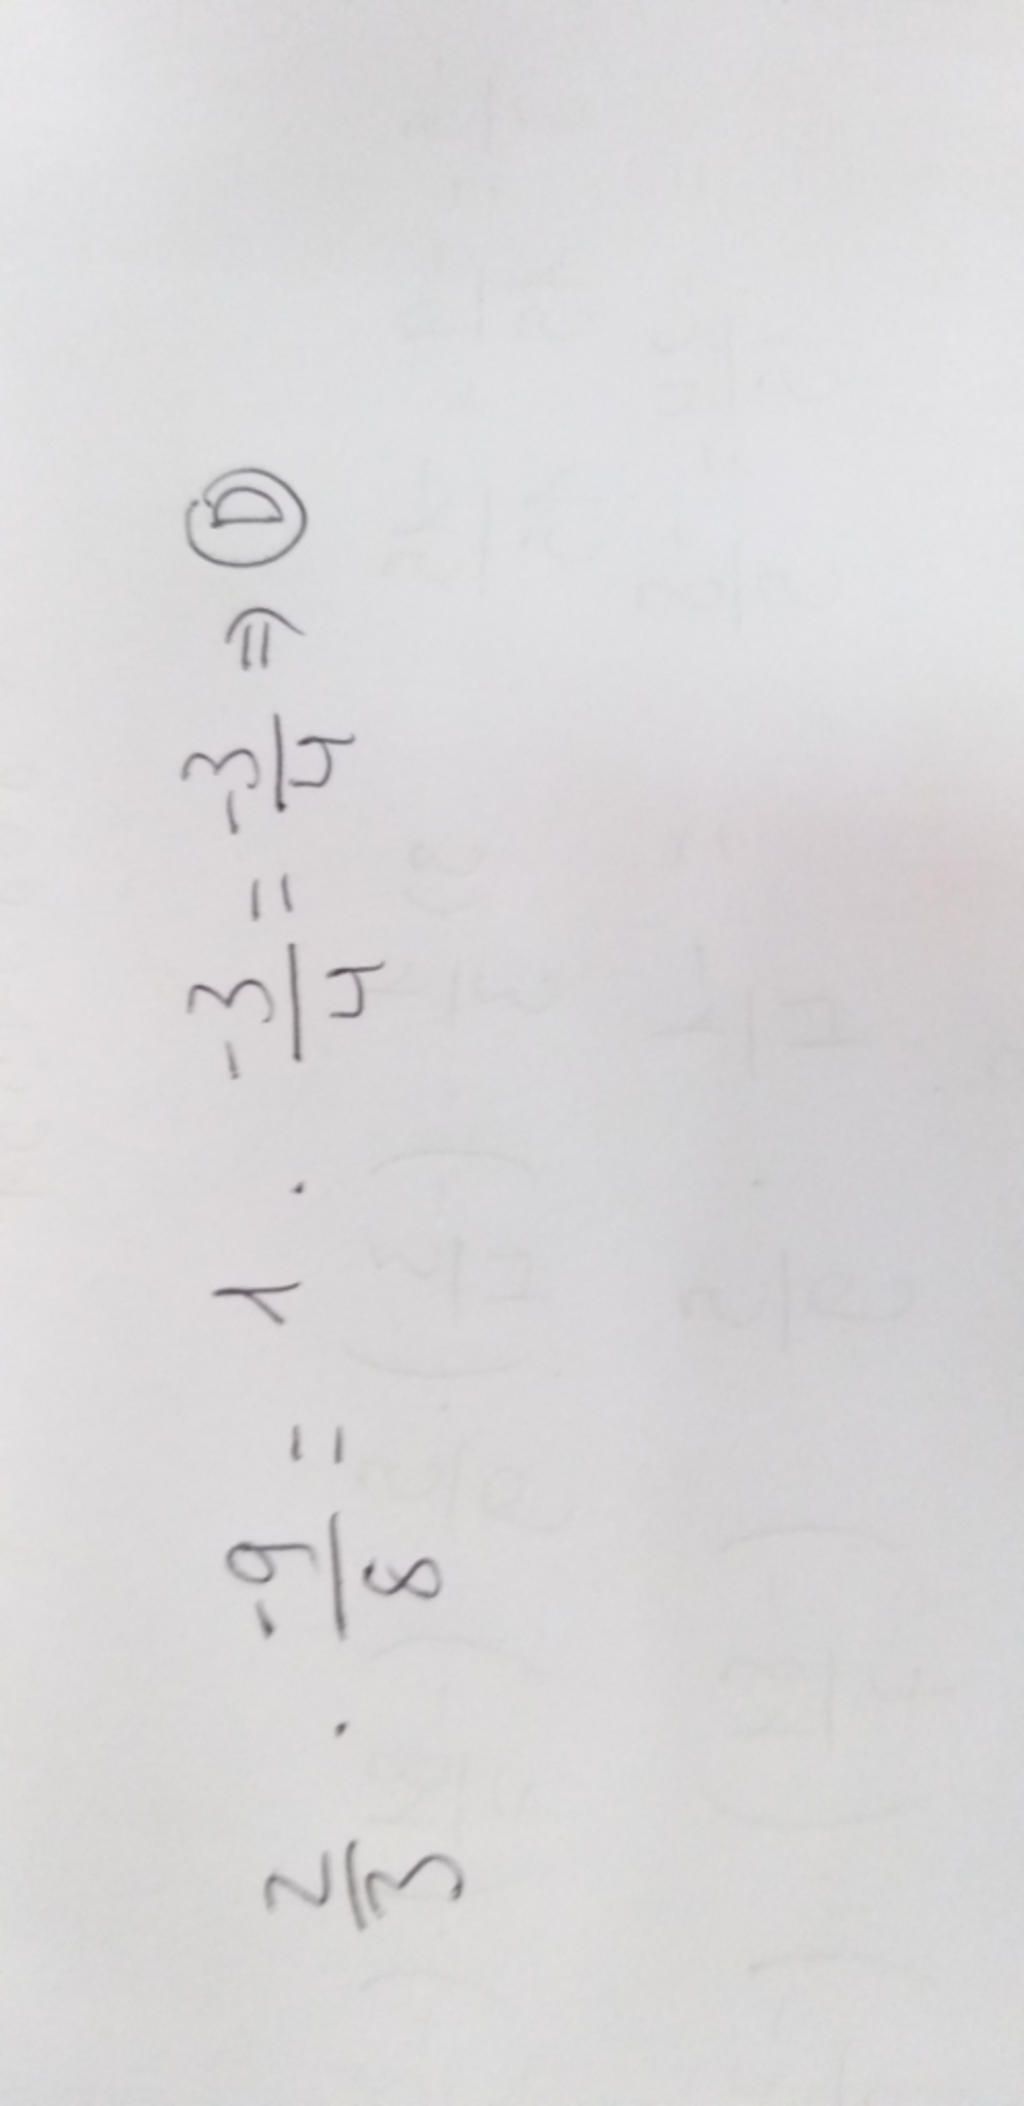 2/3 · -9/8 = 1 · -3/4 = -3/4 ⇒ D